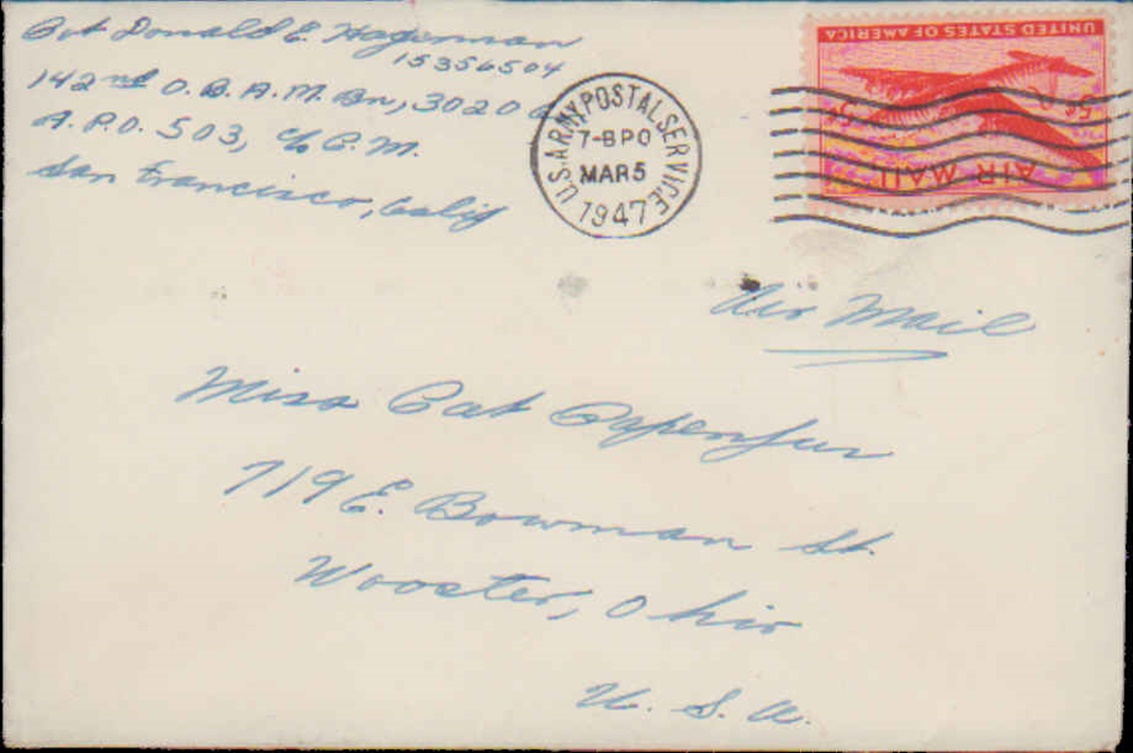 Pvt Donald E. Hagerman
15356504
142nd O.B.A.M. Bn, 3020
A.P.O. 503, c/o P.M.
San Francisco, Calif
U.S. ARMY POSTAL SERVICE
7-BPO
MAR 5
1947
UNITED STATES OF AMERICA
5¢ 5¢
AIR MAIL
Air Mail
Miss Pat Papenfus
719 E. Bowman St.
Wooster, Ohio
U. S. A.